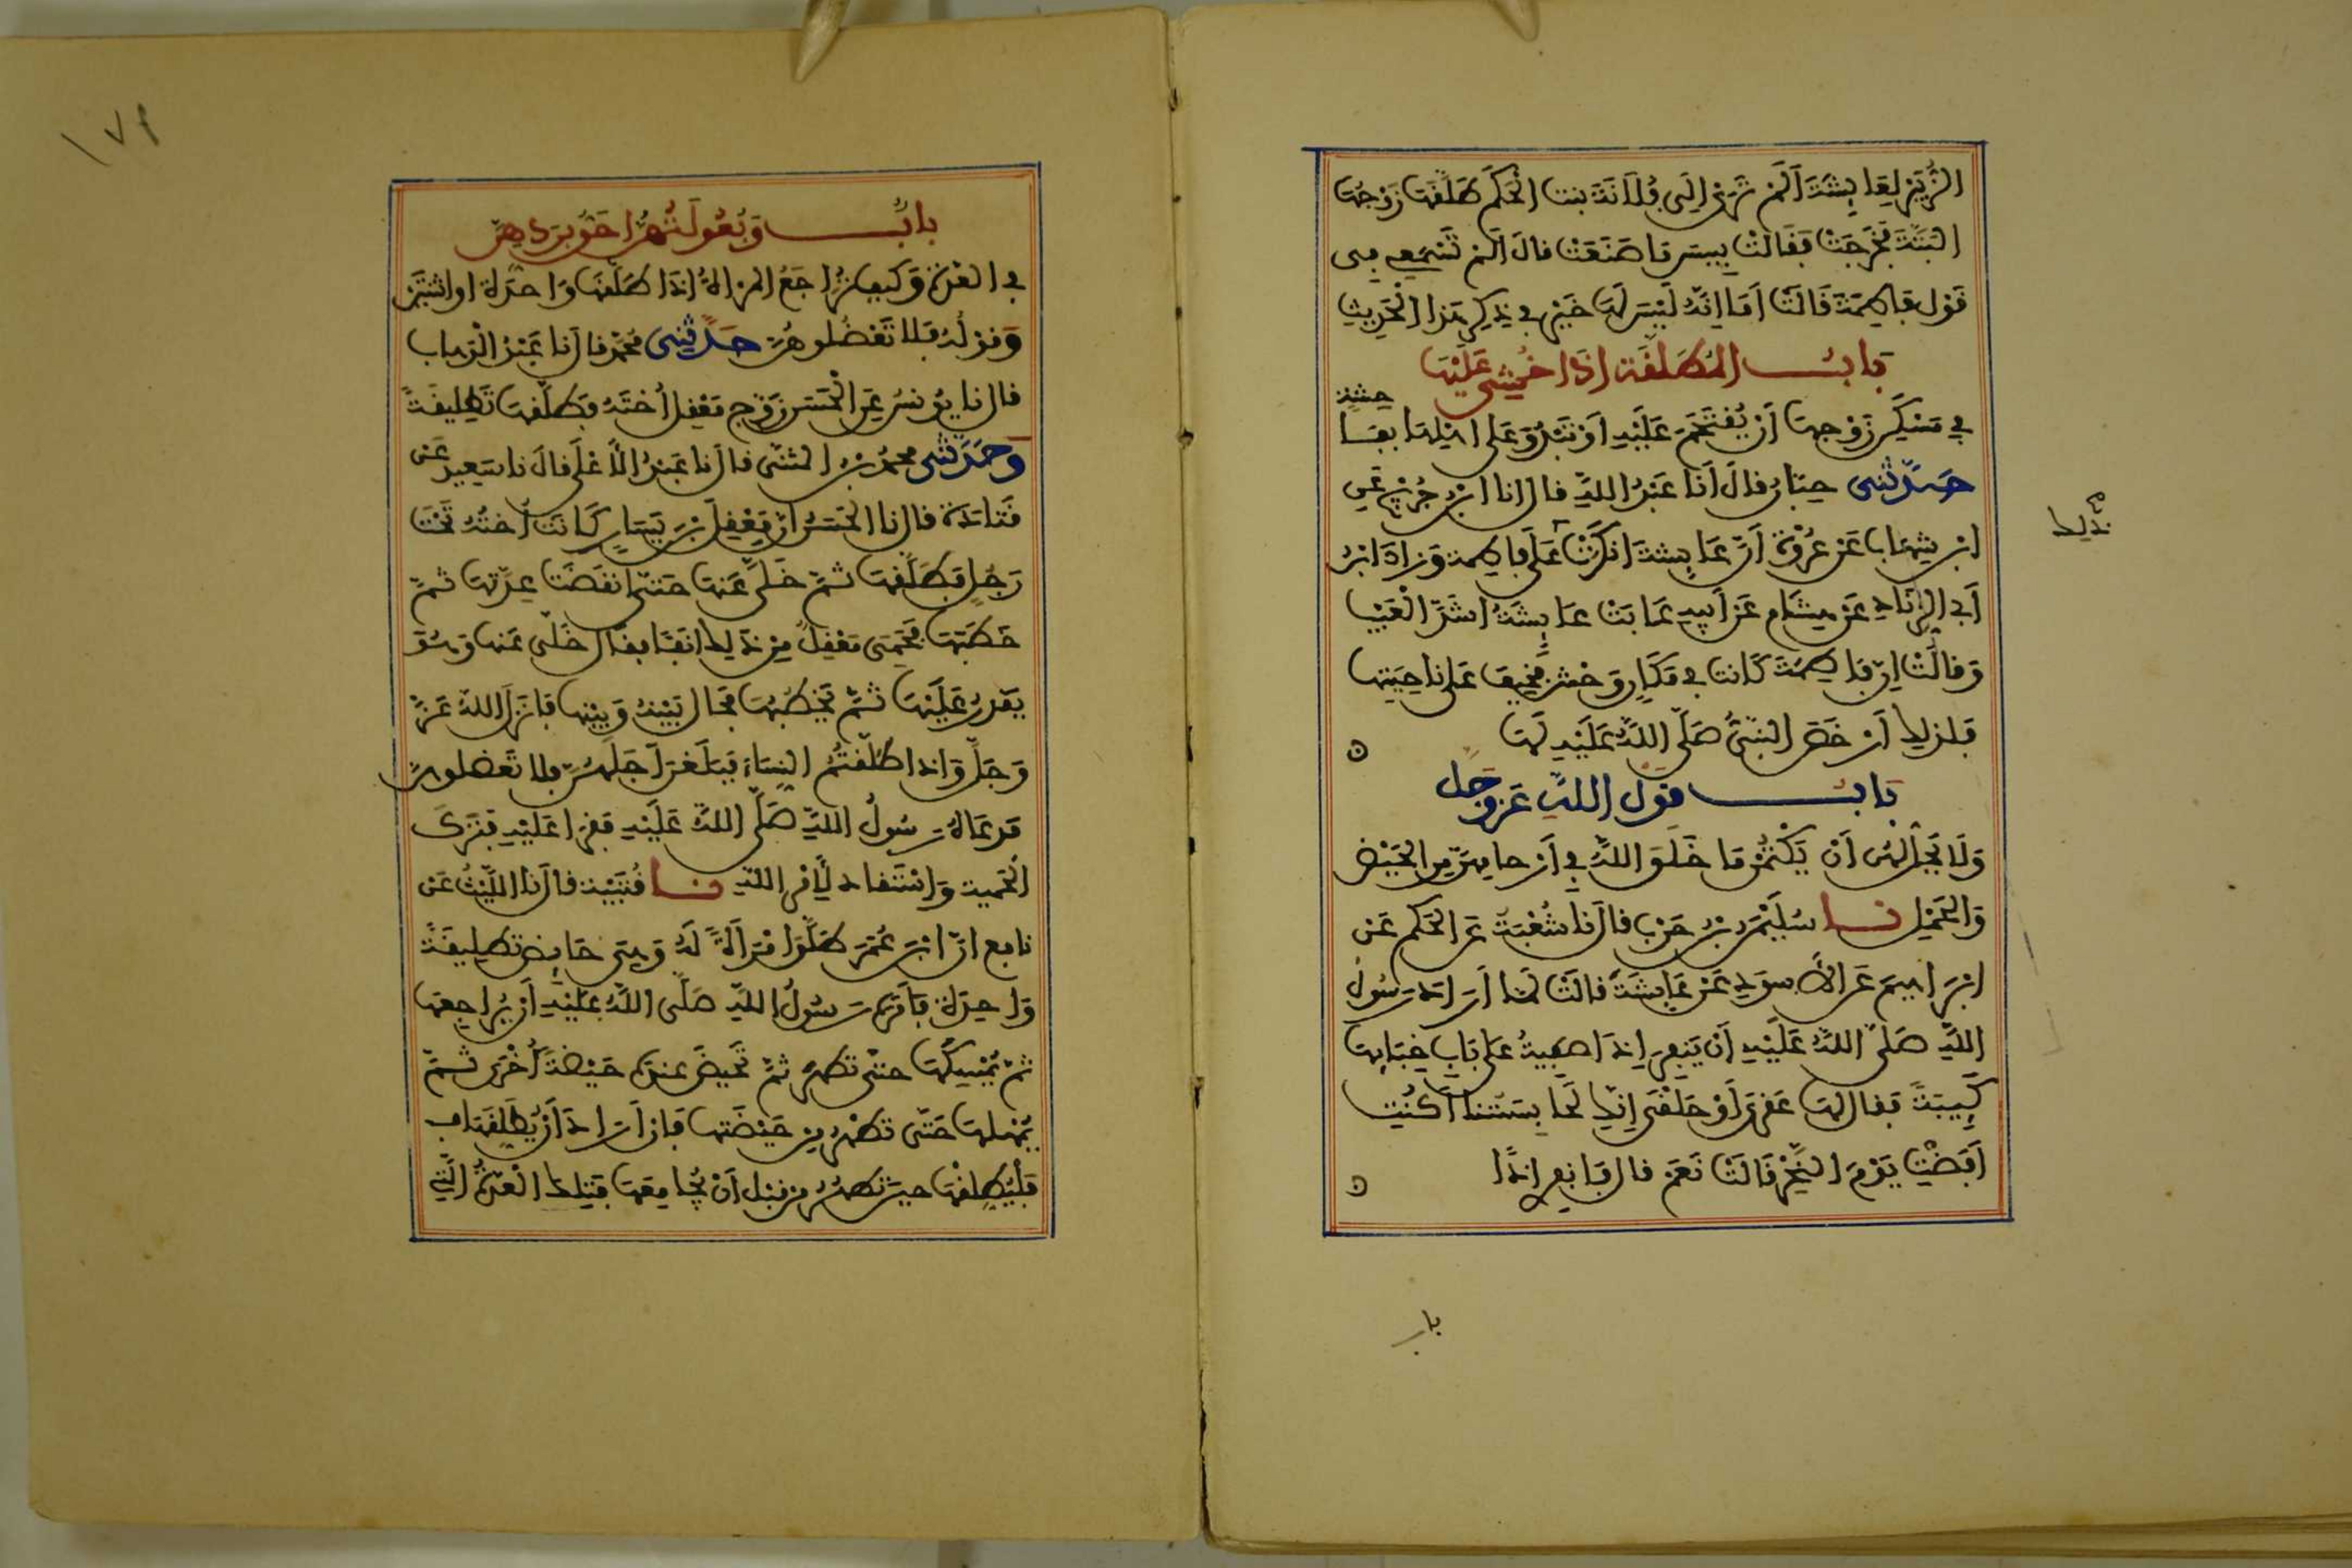 الزُّبَيْرِ لِعَائِشَةَ أَلَمْ تَرَيْ إِلَى فُلَانَةَ بنت الْحَكَمِ طَلَّقَهَا زَوْجُهَا
الْبَتَّةَ فَخَرَجَتْ فَقَالَتْ بِيسَ مَا صَنَعَتْ قالَ أَلَمْ تَسْمَعِي فِى
قَوْلِ فَاطِمَةَ قَالَتْ أَمَا إِنَّهُ لَيْسَ لَهَا خَيْرٌ فِي ذِكْرِ هَذَا الْحَدِيثِ
بَابُ الْمُطَلَّقَةِ إِذَا خُشِيَ عَلَيْهَا
فِي مَسْكَنِ زَوْجِهَا أَنْ يُقْتَحَمَ عَلَيْهِ أَوْ تَبْذُوَ عَلَى اهْلِهَا بِفَا
حشة
حَدَّثَنِى حِبَّانُ قالَ أَنَا عَبْدُ اللَّهِ قال انا ابْنُ جُرَيْجٍ عَنِ
ابْنِ شِهَابٍ عَنْ عُرْوَةَ أَنَّ عَائِشَةَ انْكَرَتْ عَلَى فاطمة وَزَادَ ابْنُ
أَبِي الزِّنَادِ عَنْ هِشَامٍ عَنْ أَبِيهِ عَابَتْ عَائِشَةُ أَشَدَّ الْعَيْبِ
وَقَالَتْ إِنَّ فَاطِمَةَ كَانَتْ فِي مَكَانٍ وَحْشٍ فَخِيفَ عَلَى نَاحِيَتِهَا
فَلِذَلِكَ أَرْخَصَ النَّبِيُّ صَلَّى اللَّهُ عَلَيْهِ لَهَا
ذلك
بَابُ قَوْلِ اللَّهِ عَزَّ وَجَلَّ
وَلَا يَحِلُّ لَهُنَّ أَنْ يَكْتُمْنَ مَا خَلَقَ اللَّهُ فِي أَرْحَامِهِنَّ مِنَ الْحَيْضِ
وَالْحَمْلِ نا سُلَيْمَنُ بْنُ حَرْبٍ قال نَا شُعْبَةُ عَنِ الْحَكَمِ عَنْ
ابْرَاهِيمَ عَنِ الأَسْوَدِ عَنْ عَائِشَةَ قَالَتْ لَمَّا أَرَادَ رَسُولُ
اللَّهِ صَلَّى اللَّهُ عَلَيْهِ أَنْ يَنْفِرَ إِذَا صَفِيَّةُ عَلَى بَابِ خِبَائِهَا
كَئِيبَةً فقال لَهَا عَقْرَى أَوْ حَلْقَى إِنَّكِ لَحَابِسَتُنَا أَكُنْتِ
أَفَضْتِ يَوْمَ النَّحْرِ قَالَتْ نَعَمْ قال فَانْفِرِي إِذًا
باب
١٧٩
بابُ وَبُعُولَتُهُنَّ أَحَقُّ بِرَدِّهِنَّ
في العِدَّةِ وَكَيْفَ يُرَاجَعُ الْمَرْأَةُ إِذَا طَلَّقَهَا وَاحِدَةً أو اثْنَتَيْنِ
وَقَوْلُهُ فَلَا تَعْضُلُوهُنَّ حَدَّثَنِى مُحَمَّدٌ قال نَا عَبْدُ الْوَهَّابِ
قال نا يُونُسُ عَنِ الْحَسَنِ زَوَّجَ مَعْقِلٌ أُخْتَهُ فَطَلَّقَهَا تَطْلِيقَةً
وَحَدَّثَنِى محمدُ بْنُ المثنى قال نا عَبْدُ الأَعْلَى قالَ نا سَعِيدٌ عَنْ
قَتَادَةَ قال نا الْحَسَنُ أَنَّ مَعْقِلَ بْنَ يَسَارٍ كَانَتْ أُخْتُهُ تَحْتَ
رَجُلٍ فَطَلَّقَهَا ثُمَّ خَلَّى عَنْهَا حَتَّى انْقَضَتْ عِدَّتُهَا ثُمَّ
خَطَبَهَا فَحَمِيَ مَعْقِلٌ مِنْ ذَلِكَ انَفًا فقال خَلَّى عَنْهَا وَهُوَ
يَقْدِرُ عَلَيْهَا ثُمَّ يَخْطُبُهَا فَحَالَ بَيْنَهُ وَبَيْنَهَا فَأَنْزَلَ اللَّهُ عَزَّ
وَجَلَّ وَإِذَا طَلَّقْتُمُ النِّسَاءَ فَبَلَغْنَ أَجَلَهُنَّ فلا تَعْضُلُوهُنَّ
فَدَعَاهُ رَسُولُ اللَّهِ صَلَّى اللَّهُ عَلَيْهِ فَقَرَأَ عَلَيْهِ فَتَرَكَ
الْحَمِيَّةَ وَاسْتَقَادَ لِأَمْرِ اللَّهِ نا قُتَيْبَةُ قال نا اللَّيْثُ عَنْ
نافع أَنَّ ابْنَ عُمَرَ طَلَّقَ امْرَأَةً لَهُ وَهِيَ حَائِضٌ تَطْلِيقَةً
وَاحِدَةً فَأَمَرَهُ رَسُولُ اللَّهِ صَلَّى اللَّهُ عَلَيْهِ أَنْ يُرَاجِعَهَا
ثُمَّ يُمْسِكَهَا حَتَّى تَطْهُرَ ثُمَّ تَحِيضَ عِنْدَهُ حَيْضَةً أُخْرَى ثُمَّ
يُمْهِلَهَا حَتَّى تَطْهُرَ مِنْ حَيْضَتِهَا فَإِنْ أَرَادَ أَنْ يُطَلِّقَهَا
فَلْيُطَلِّقْهَا حِينَ تَطْهُرُ مِنْ قَبْلِ أَنْ يُجَامِعَهَا فَتِلْكَ الْعِدَّةُ الَّتِي